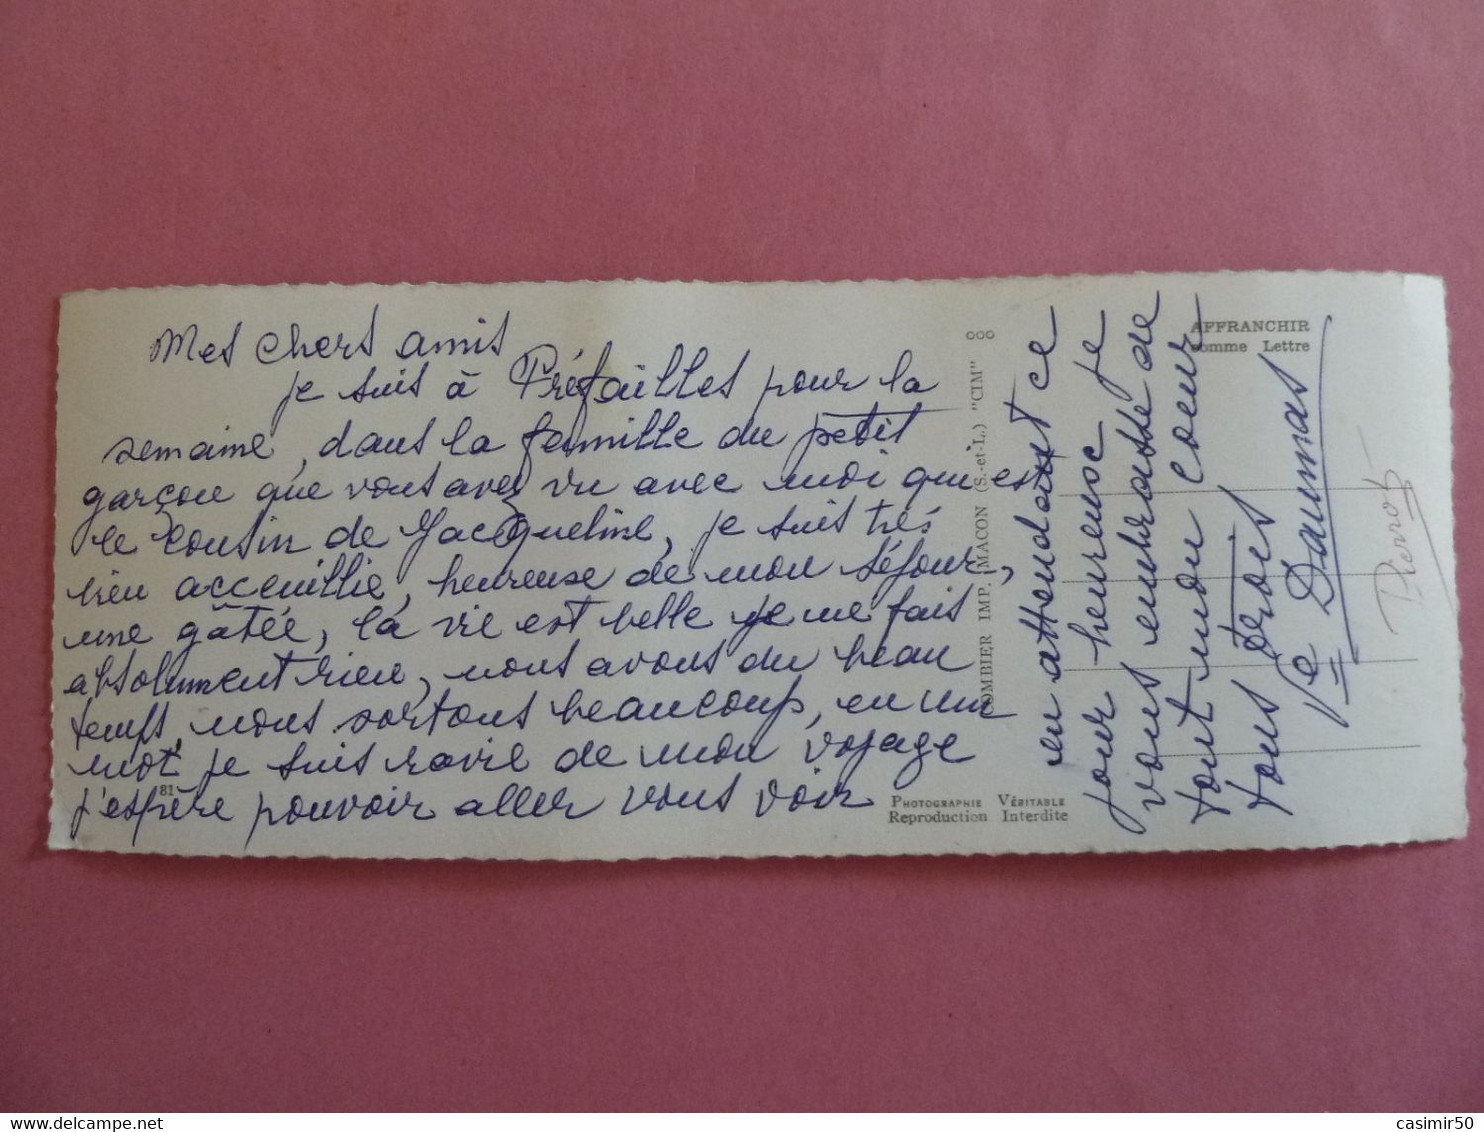 Mes chers amis
je suis à Préfailles pour la
semaine, dans la famille du petit
garçon que vous avez vu avec moi qui est
le cousin de Jacqueline, je suis très
bien acceuillie, heureuse de mon séjour,
une gâtée, la vie est belle je ne fais
absolument rien, nous avons du beau
temps, nous sortons beaucoup, en un
mot, je suis ravie de mon voyage
j'espère pouvoir aller vous voir
en attendant ce
jour heureux je
vous embrasse de
tout mon coeur
tous trois
Ve Daumas
Pierrot
AFFRANCHIR
comme Lettre
ooo
COMBIER IMP. MACON (S.-et-L.) "CIM"
81
PHOTOGRAPHIE VÉRITABLE
Reproduction Interdite
casimir50